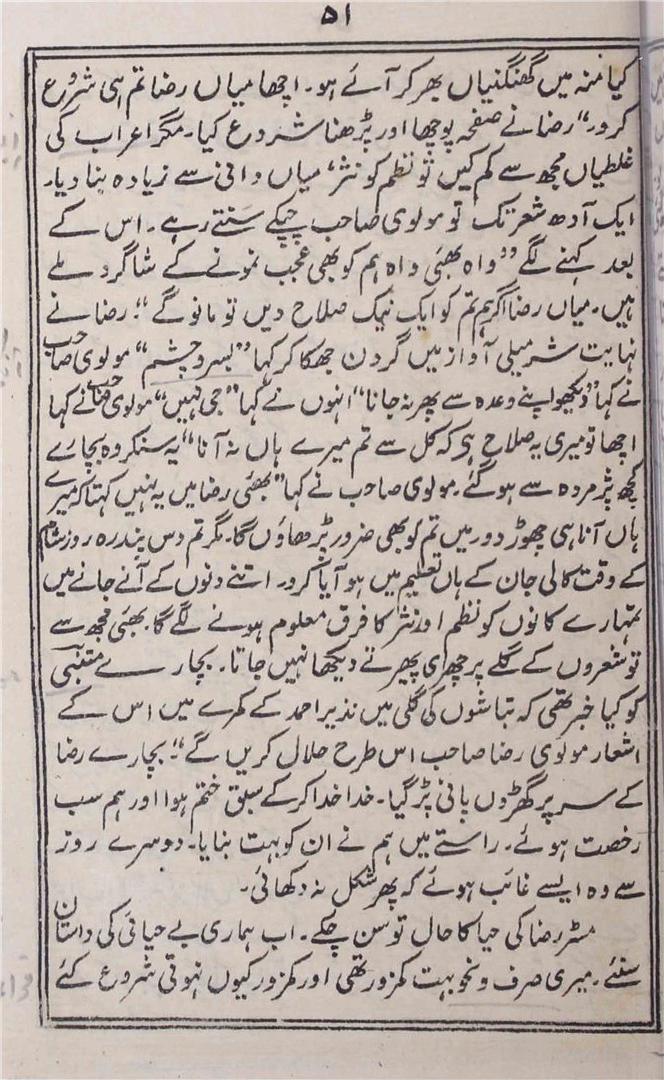 ۵۱
کیا منہ میں گھنگنیاں بھر کر آئے ہو۔ اچھا میاں رضا تم ہی شروع
کرو۔“ رضا نے صفحہ پوچھا اور پڑھنا شروع کیا۔ مگر اعراب کی
غلطیاں مجھ سے کم کیں تو نظم کو نثر، میاں دانی سے زیادہ بنا دیا۔
ایک آدھ شعر تک تو مولوی صاحب چپکے سنتے رہے۔ اس کے
بعد کہنے لگے ”واہ بھئی واہ ہم کو بھی عجب نمونے کے شاگرد ملے
ہیں۔ میاں رضا اگر ہم تم کو ایک نیک صلاح دیں تو مانو گے“۔ رضا نے
نہایت شرمیلی آواز میں گردن جھکا کر کہا ”بسر و چشم“ مولوی صاحب
نے کہا ”دیکھو اپنے وعدہ سے پھر نہ جانا“ انہوں نے کہا ”جی نہیں“ مولوی صاحب نے کہا
اچھا تو میری یہ صلاح ہی کہ کل سے تم میرے ہاں نہ آنا“ یہ سنکر وہ بچارے
کچھ پژمردہ سے ہو گئے۔ مولوی صاحب نے کہا ”بھئی رضا میں یہ نہیں کہتا کہ میرے
ہاں آنا ہی چھوڑ دو۔ میں تم کو بھی ضرور پڑھاؤں گا۔ مگر تم دس پندرہ روز شام
کے وقت کالی جان کے ہاں تعلیم میں ہو آیا کرو۔ اتنے دنوں کے آنے جانے میں
تمہارے کانوں کو نظم اور نثر کا فرق معلوم ہونے لگے گا۔ بھئی مجھ سے
تو شعروں کے گلے پر چھری پھیرتے دیکھا نہیں جاتا۔ بچارے متنبی
کو کیا خبر تھی کہ بتاشوں کی گلی میں نذیر احمد کے کمرے میں اس کے
اشعار مولوی رضا صاحب اس طرح حلال کریں گے“۔ بچارے رضا
کے سر پر گھڑوں پانی پڑ گیا۔ خدا خدا کر کے سبق ختم ہوا اور ہم سب
رخصت ہوئے۔ راستے میں ہم نے ان کو بہت بنایا۔ دوسرے روز
سے وہ ایسے غائب ہوئے کہ پھر شکل نہ دکھائی۔
مسٹر رضا کی حیا کا حال تو سن چکے۔ اب ہماری بے حیائی کی داستان
سنئے۔ میری صرف و نحو بہت کمزور تھی اور کمزور کیوں نہوتی شروع کئے